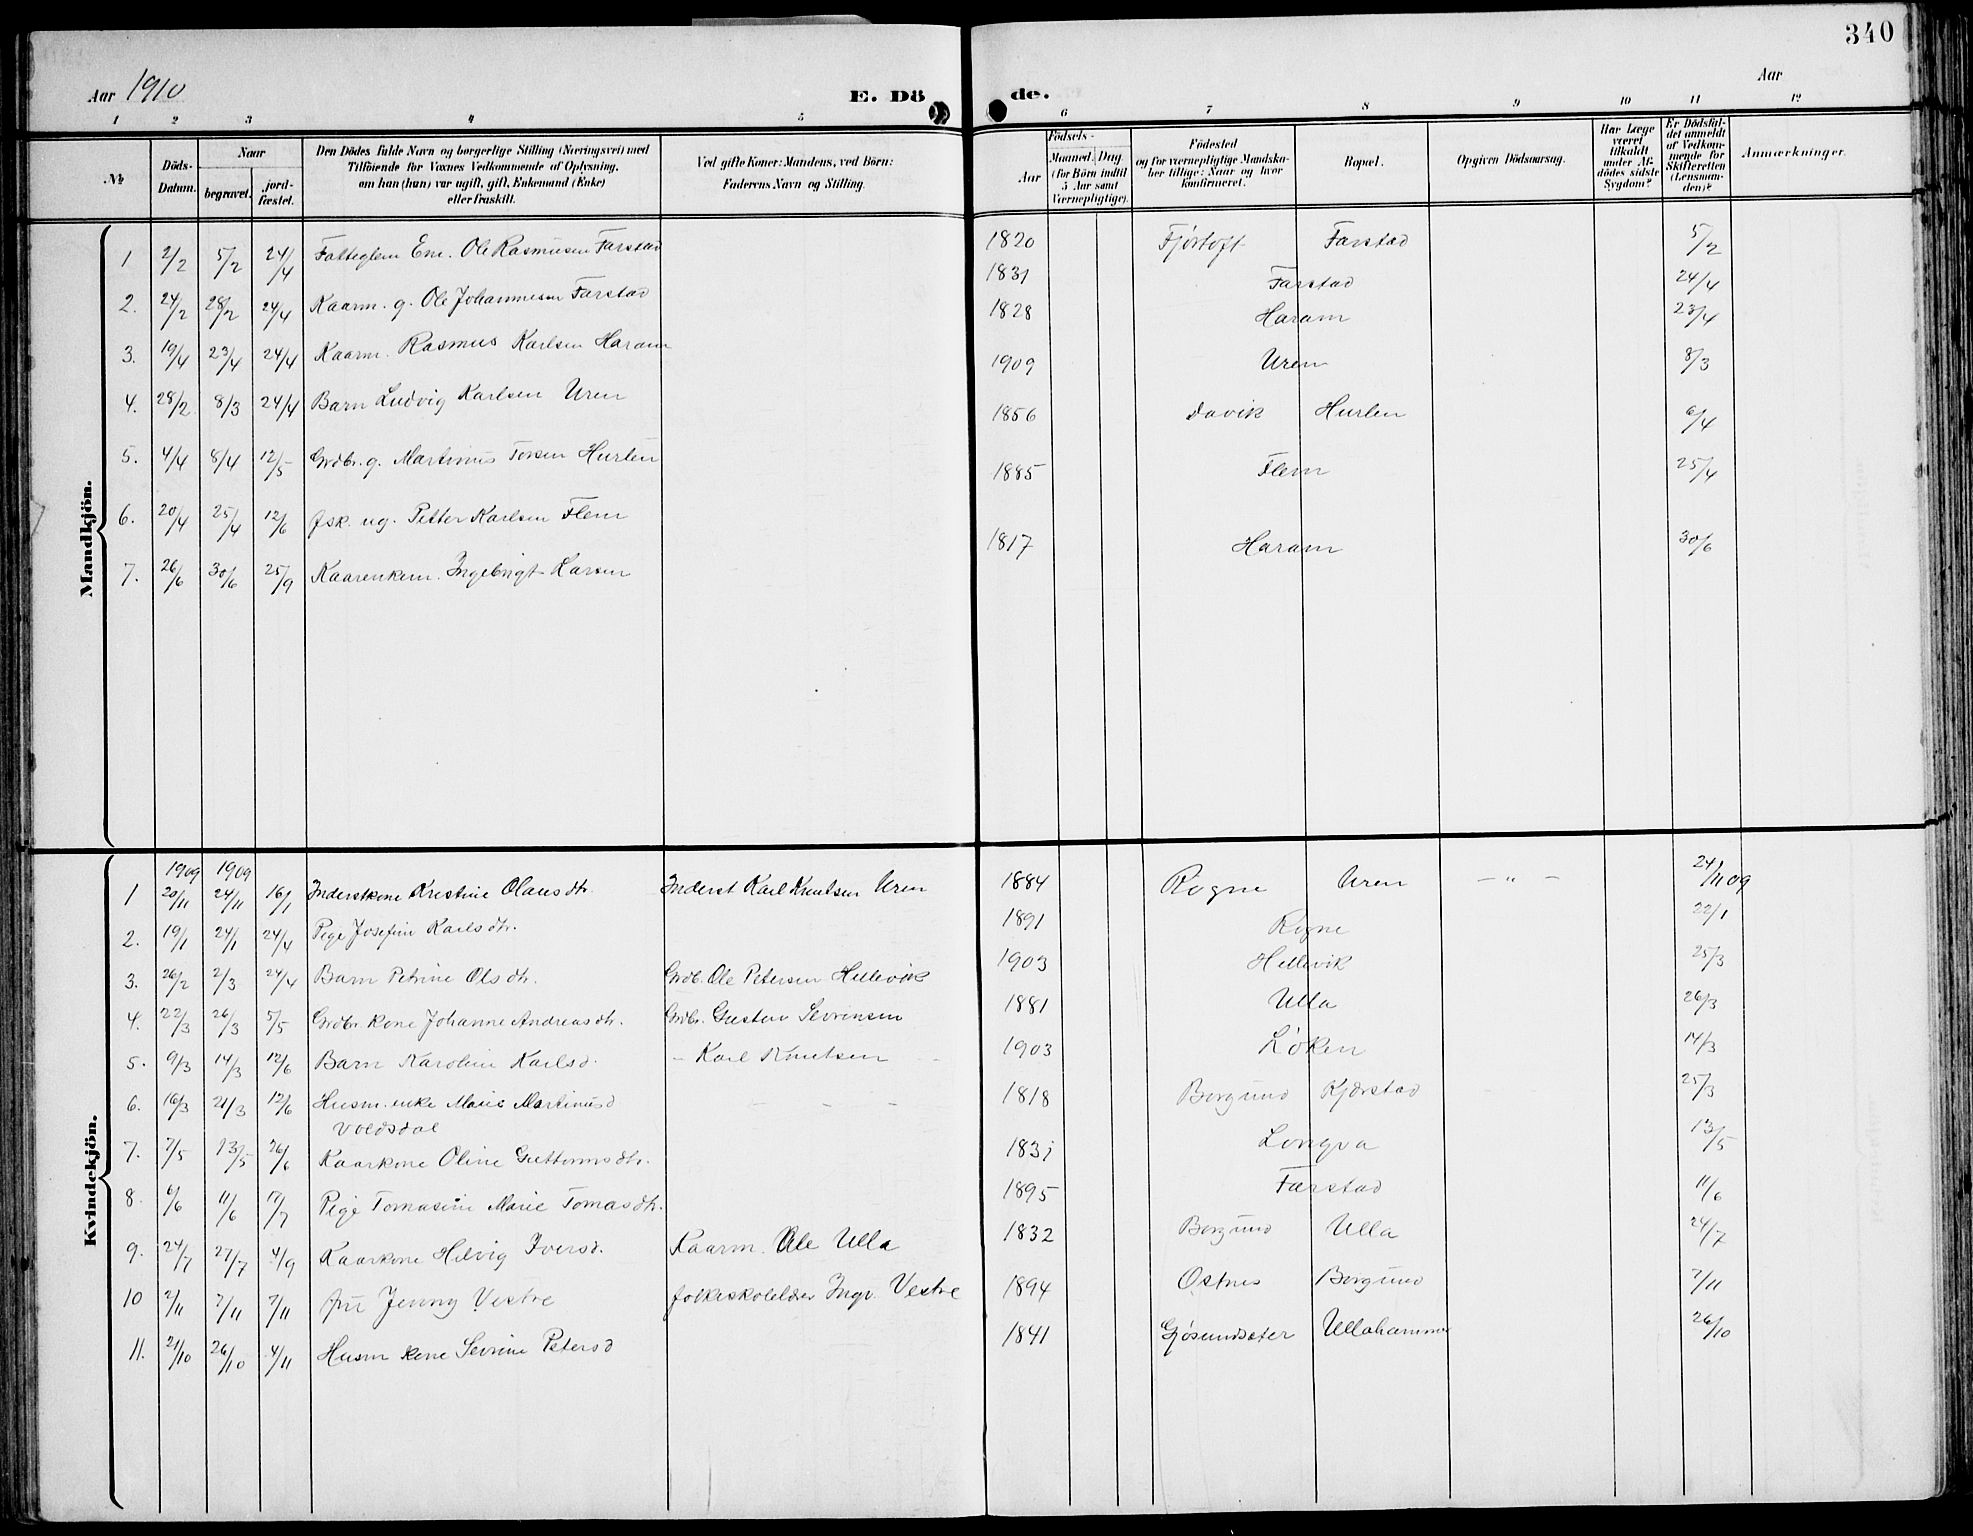 340
Aar 1910 E. Dö de. Aar
1 2 3 4 5 6 7 8 9 10 11 12
№
Döds-Datum.
Naar
begravet. jordfæstet.
Den Dödes fulde Navn og borgerlige Stilling (Næringsvei) med
Tilföiende for Voxnes Vedkommende af Oplysning,
om han (hun) var ugift, gift, Enkemand (Enke)
eller fraskilt.
Ved gifte Koner: Mandens, ved Börn:
Faderens Navn og Stilling.
Födsels-
Aar Maaned. Dag
(for Börn indtil
5 Aar samt
Værnepligtige).
Födested
og for værnepligtige Mandska-
ber tillige: Naar og hvor
konfirmeret.
Bopæl.
Opgiven Dödsaarsag.
Har Læge
været
tilkaldt
under Af-
dödes sidste
Sygdom?
Er Dödsfal-
det anmeldt
af Vedkom-
mende for
Skifteretten
(Lensman-
den)?
Anmærkninger.
Mandkjön.
1 2/2 5/2 24/4 Ole Rasmusen Farstad 1820 Fjörtoft Farstad 5/2
2. 24/2 28/2 24/4 Kaarm. g. Ole Johannesen Farstad 1831 Farstad 24/4
3. 19/4 23/4 24/4 Kaarm. Rasmus Karlsen Haram 1828 Haram 23/4
4. 28/2 8/3 24/4 Barn Ludvig Karlsen Uren 1909 Uren 8/3
5. 4/4 8/4 12/5 Grdbr. g. Martinus Hurlen 1856 Davik Hurlen 6/4
6. 20/4 25/4 12/6 fsk. ug. Petter Karlsen Flem 1885 Flem 25/4
7. 26/6 30/6 25/9 Ingebrigt Larsen 1817 Haram 30/6
Kvindekjön.
1909 1909
1 20/11 24/11 16/1 Inderstkone Kristine Olausdtr. Inderst Karl Knutsen Uren 1884 Rogne Uren — " — 24/11 09
2. 19/1 24/1 24/4 Pige Josefine Karlsdtr. 1891 Rogne 22/1
3. 26/2 2/3 24/4 Barn Petrine Olsdtr. Grdb. Ole Petersen Hellevik 1903 Hellevik 25/3
4. 22/3 26/3 5/5 Grdbr. kone Johanne Andreasdtr. Grdbr. Gustav Sevrinsen 1881 Ulla 26/3
5. 9/3 14/3 12/6 Barn Karoline Karlsd. – Karl Knutsen 1903 Löken 14/3
6. 16/3 21/3 12/6 Husm. enke Marie Martinusd 1818 Borgund Kjærstad 25/3
Voldsdal
7. 7/5 13/5 26/6 Kaarkone Oline Guttormsdtr. Longva 13/5
8. 6/6 11/6 17/7 Pige Tomasine Marie Tomasdtr. 1895 Farstad 11/6
9. 24/7 27/7 4/9 Kaarkone Hilvig Iversd. Kaarm. Ole Ulla 1832 Borgund Ulla 24/7
10 2/11 7/11 7/11 fru Jenny Vestre folkeskolelærer Ingv. Vestre 1894 Ostnes Borgund 7/11
11. 21/10 26/10 4/11 Husm kone Sevrine Petersd 1841 Gjösundsæter Ullahammer 26/10